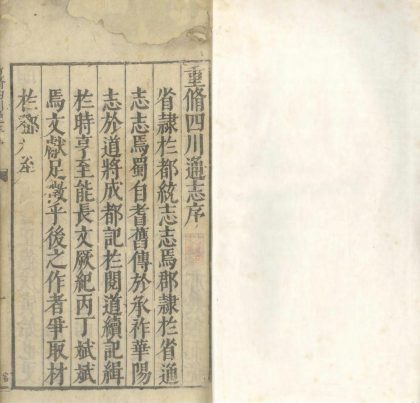 重脩四川通志序
省隸扵都統志志焉郡隸扵省通
志志焉蜀自耆舊傳於承祚華陽
志於道將成都記扵閱道續記緝
扵時亨至能長文厥紀丙丁斌斌
焉文獻足徵乎後之作者爭取材
扵鄧